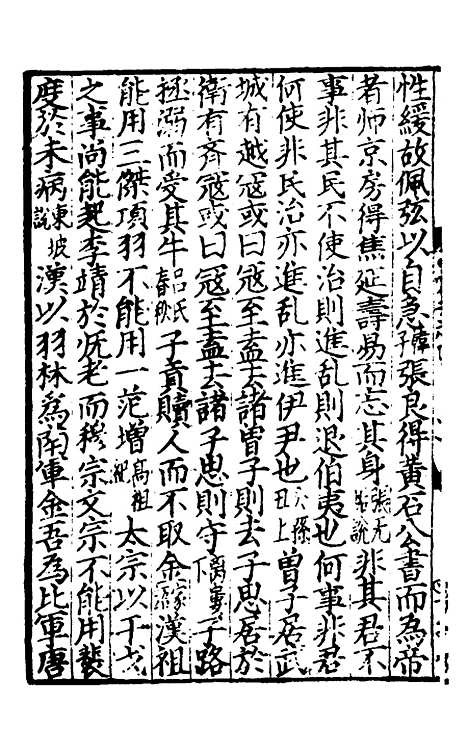 性緩故佩弦以自急韓子張良得黃石公書而為帝
者師京房得焦延壽易而忘其身張无垢說非其君不
事非其民不使治則進亂則退伯夷也何事非君
何使非民治亦進乱亦進伊尹也公孫丑上曾子居武
城有越寇或曰寇至盍去諸曾子則去子思居於
衛有齊寇或曰寇至盍去諸子思則守離婁下子路
拯溺而受其牛呂氏春秋子貢贖人而不取金漢祖
能用三傑項羽不能用一范增高祖太宗以干戈
之事尚能起李靖於既老而穆宗文宗不能用裴
度於未病東坡說漢以羽林為南軍金吾為北軍唐